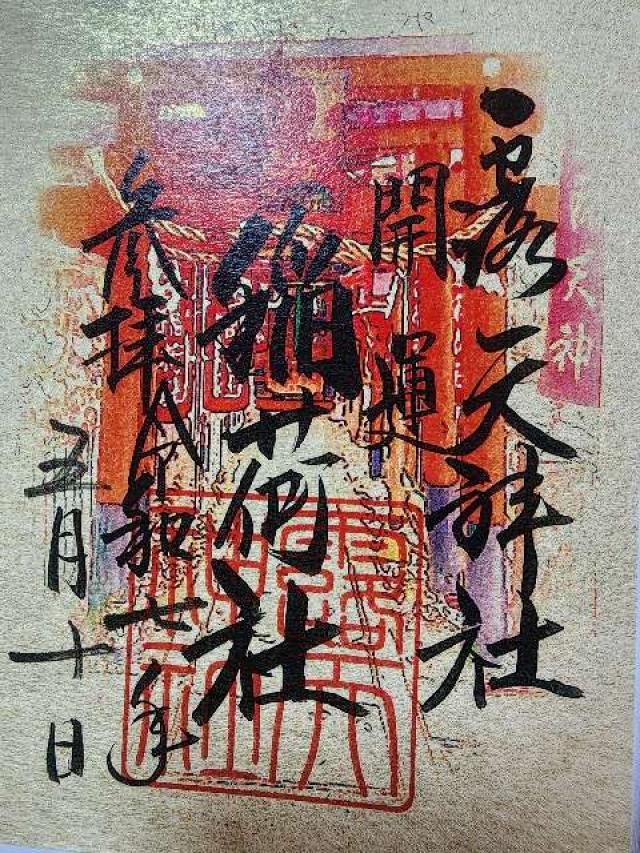 露天神社
開運
稲荷社
参拝令和七年
五月十日
露天
神社
天神